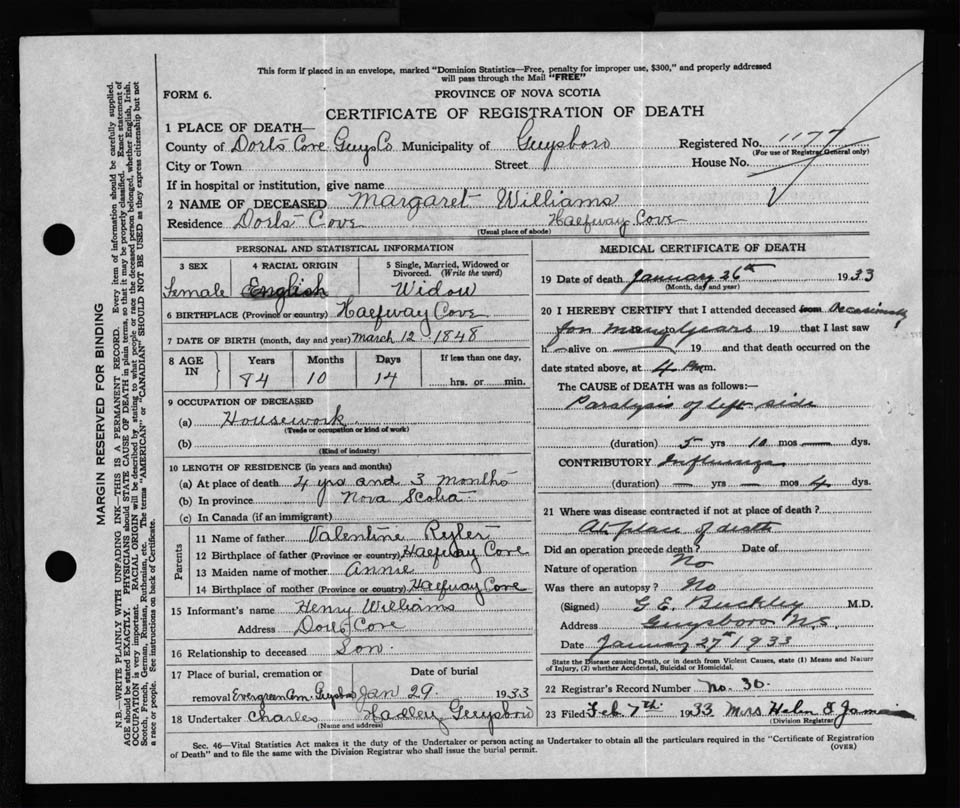 This form if placed in an envelope, marked "Dominion Statistics—Free, penalty for improper use, $300," and properly addressed
will pass through the Mail "FREE"
FORM 6.
PROVINCE OF NOVA SCOTIA
CERTIFICATE OF REGISTRATION OF DEATH
1 PLACE OF DEATH—
County of Dorts Cove Guys Co. Municipality of Guysboro Registered No. 1177
(For use of Registrar General only)
City or Town Street House No.
If in hospital or institution, give name
2 NAME OF DECEASED Margaret Williams
Residence Dorts Cove Halfway Cove
(Usual place of abode)
PERSONAL AND STATISTICAL INFORMATION
3 SEX 4 RACIAL ORIGIN 5 Single, Married, Widowed or
Divorced. (Write the word)
Female English Widow
6 BIRTHPLACE (Province or country) Halfway Cove
7 DATE OF BIRTH (month, day and year) March 12 1848
8 AGE IN Years Months Days If less than one day,
84 10 14 hrs. or min.
9 OCCUPATION OF DECEASED
(a) Housework
(Trade or occupation or kind of work)
(b)
(Kind of industry)
10 LENGTH OF RESIDENCE (in years and months)
(a) At place of death 4 yrs and 3 months
(b) In province Nova Scotia
(c) In Canada (if an immigrant)
Parents
11 Name of father Valentine
12 Birthplace of father (Province or country) Halfway Cove
13 Maiden name of mother Annie
14 Birthplace of mother (Province or country) Halfway Cove
15 Informant's name Henry Williams
Address Dorts Cove
16 Relationship to deceased Son.
17 Place of burial, cremation or Date of burial
removal Evergreen Cem. Guysboro Jan 29. 1933
18 Undertaker Charles Hadley Guysboro
(Name and address)
MEDICAL CERTIFICATE OF DEATH
19 Date of death January 26th 1933
(Month, day and year)
20 I HEREBY CERTIFY that I attended deceased from Occasionally
for many years 19 that I last saw
h — alive on — 19 and that death occurred on the
date stated above, at 4 P.m.
The CAUSE of DEATH was as follows:—
Paralysis of left side
(duration) 5 yrs 10 mos — dys.
CONTRIBUTORY Influenza
(duration) — yrs — mos 4 dys.
21 Where was disease contracted if not at place of death?
At place of death
Did an operation precede death? Date of
Nature of operation No
Was there an autopsy? No
(Signed) G.E. Buckley M.D.
Address Guysboro N.S.
Date January 27th 1933
State the Disease causing Death, or in death from Violent Causes, state (1) Means and Nature
of Injury, (2) whether Accidental, Suicidal or Homicidal.
22 Registrar's Record Number No. 30.
23 Filed Feb 7th 1933 Mrs Helen S.
(Division Registrar)
Sec. 46—Vital Statistics Act makes it the duty of the Undertaker or person acting as Undertaker to obtain all the particulars required in the "Certificate of Registration
of Death" and to file the same with the Division Registrar who shall issue the burial permit. (OVER)
MARGIN RESERVED FOR BINDING
N.B.—WRITE PLAINLY WITH UNFADING INK—THIS IS A PERMANENT RECORD. Every item of information should be carefully supplied.
AGE should be stated EXACTLY. PHYSICIANS should STATE CAUSE OF DEATH in plain terms, so that it may be properly classified. Exact statement of
OCCUPATION is very important. RACIAL ORIGIN will be described by stating to what people or race the deceased person belonged, whether English, Irish,
Scotch, French, German, Russian, Ruthenian, etc. The terms "AMERICAN" or "CANADIAN" SHOULD NOT BE USED as they express citizenship but not
a race or people. See instructions on back of Certificate.